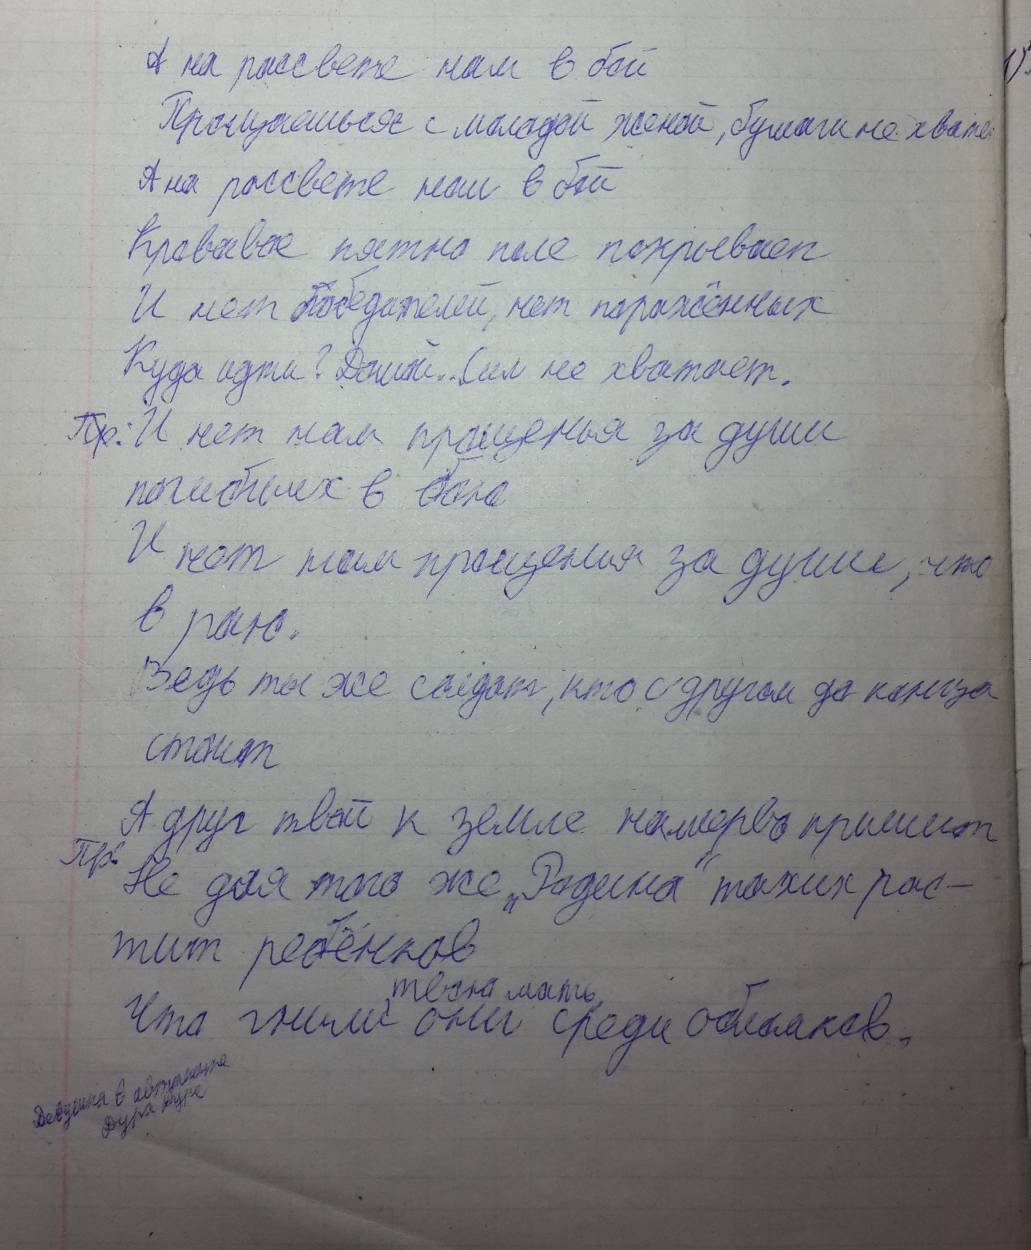 А на рассвете нам в бой
Прощаешься с молодой женой, бумаги не хвате
А на рассвете нам в бой
Кровавое пятно поле покрывает
И нет победителей, нет поражённых
Куда идти? Домой.. Сил не хватает.
Пр: И нет нам прощенья за души
погибших в бою
И нет нам прощения за души, что
в раю.
Ведь ты же солдат, кто с другом до конца
стоит
А друг твой к земле намертво пришит
Пр: Не для того же „Родина" таких рас-
тит ребёнков
твою мать,
Что гнили они среди обломков.
Девушка в автомате
Дура